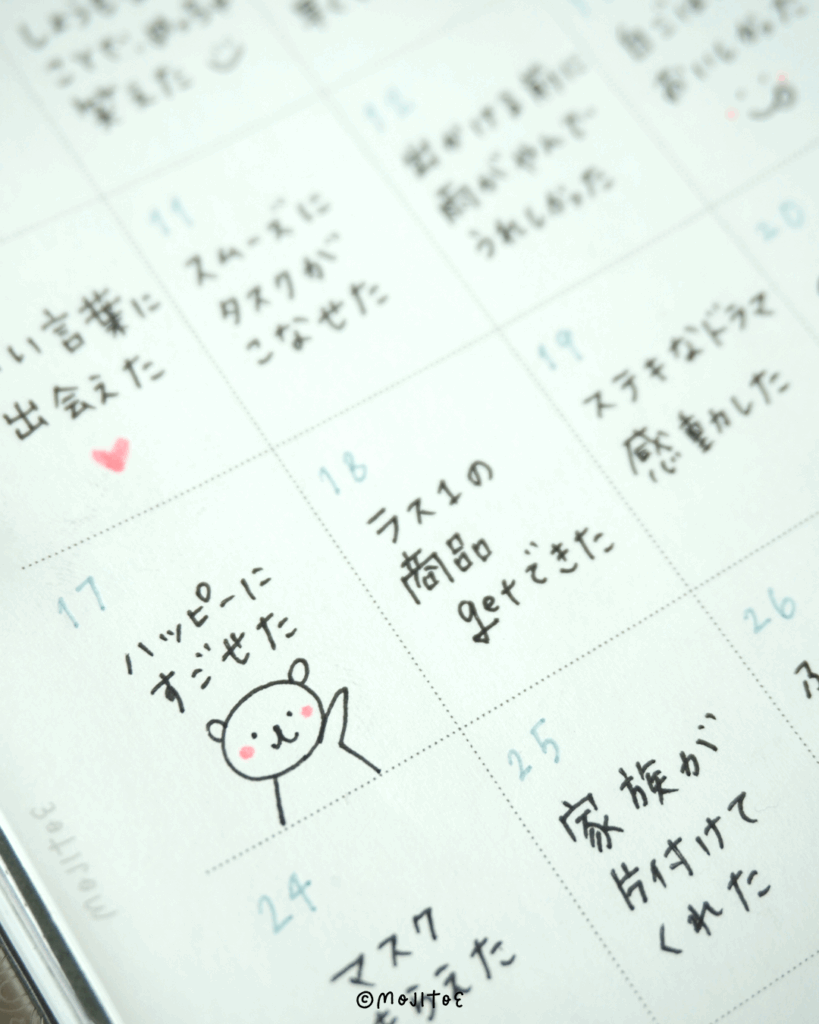 ことで、めっちゃ
笑えた
11
スムーズに
タスクが
こなせた
12
出かける前に
雨がやんで
うれしかった
おいしかった
い言葉に
出会えた
17
ハッピーに
すごせた
18
ラス1の
商品
getできた
19
ステキなドラマ
感動した
20
24
マスク
もらえた
25
家族が
片付けて
くれた
26
ふ
MOJITOE
©MOJITOE